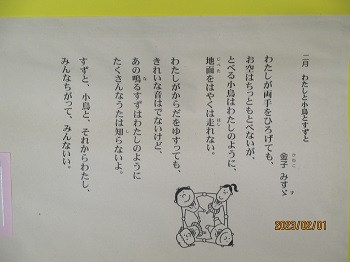 二月　わたしと小鳥とすずと
金子　みすゞ
わたしが両手をひろげても、
お空はちっともとべないが、
とべる小鳥はわたしのように、
地面をはやくは走れない。
わたしがからだをゆすっても、
きれいな音はでないけど、
あの鳴るすずはわたしのように
たくさんなうたは知らないよ。
すずと、小鳥と、それからわたし、
みんなちがって、みんないい。
2023/02/01